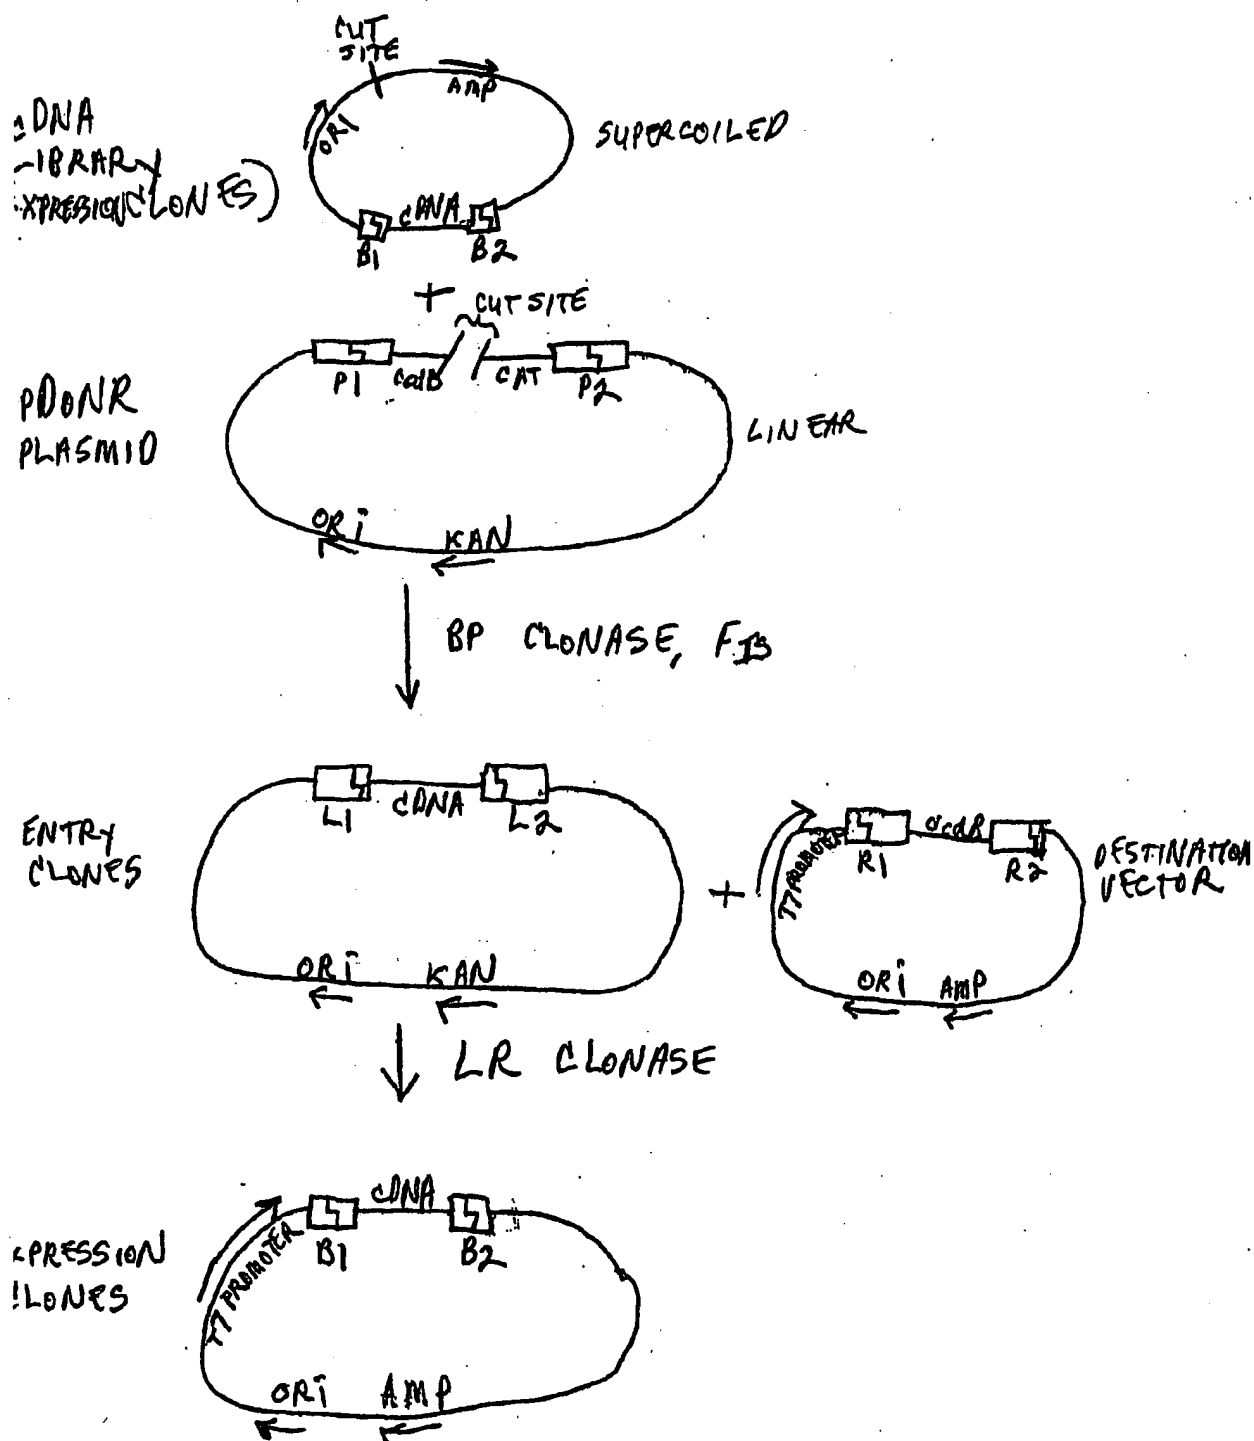 CUT
SITE
AMP
ORI
DNA
IBRARY
XPRESSION CLONES)
SUPERCOILED
cDNA
B1
B2
+
CUT SITE
P1
ccdB
CAT
P2
pDONR
PLASMID
LINEAR
ORi
KAN
BP CLONASE, FIS
L1
cDNA
L2
ENTRY
CLONES
ORi
KAN
+
T7 PROMOTER
R1
ccdB
R2
DESTINATION
VECTOR
ORi
AMP
LR CLONASE
cDNA
B1
B2
T7 PROMOTER
PRESSION
LONES
ORi
AMP